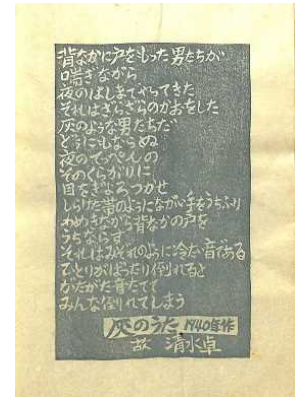 背なかに戸をしょった男たちが
喘ぎながら
夜のはしまでやってきた
それはざらざらのかおをした
灰のような男たちだ
どうにもならぬ
夜のてっぺんの
そのくらがりに
目をぎょろつかせ
しらけた帯のようにながい手をうちふり
わめきながら背なかの戸を
うちならす
それはみぞれのように冷たい音である
ひとりがばったり倒れると
がたがた音たてて
みんな倒れてしまう
灰のうた 1940年作
故 清水卓